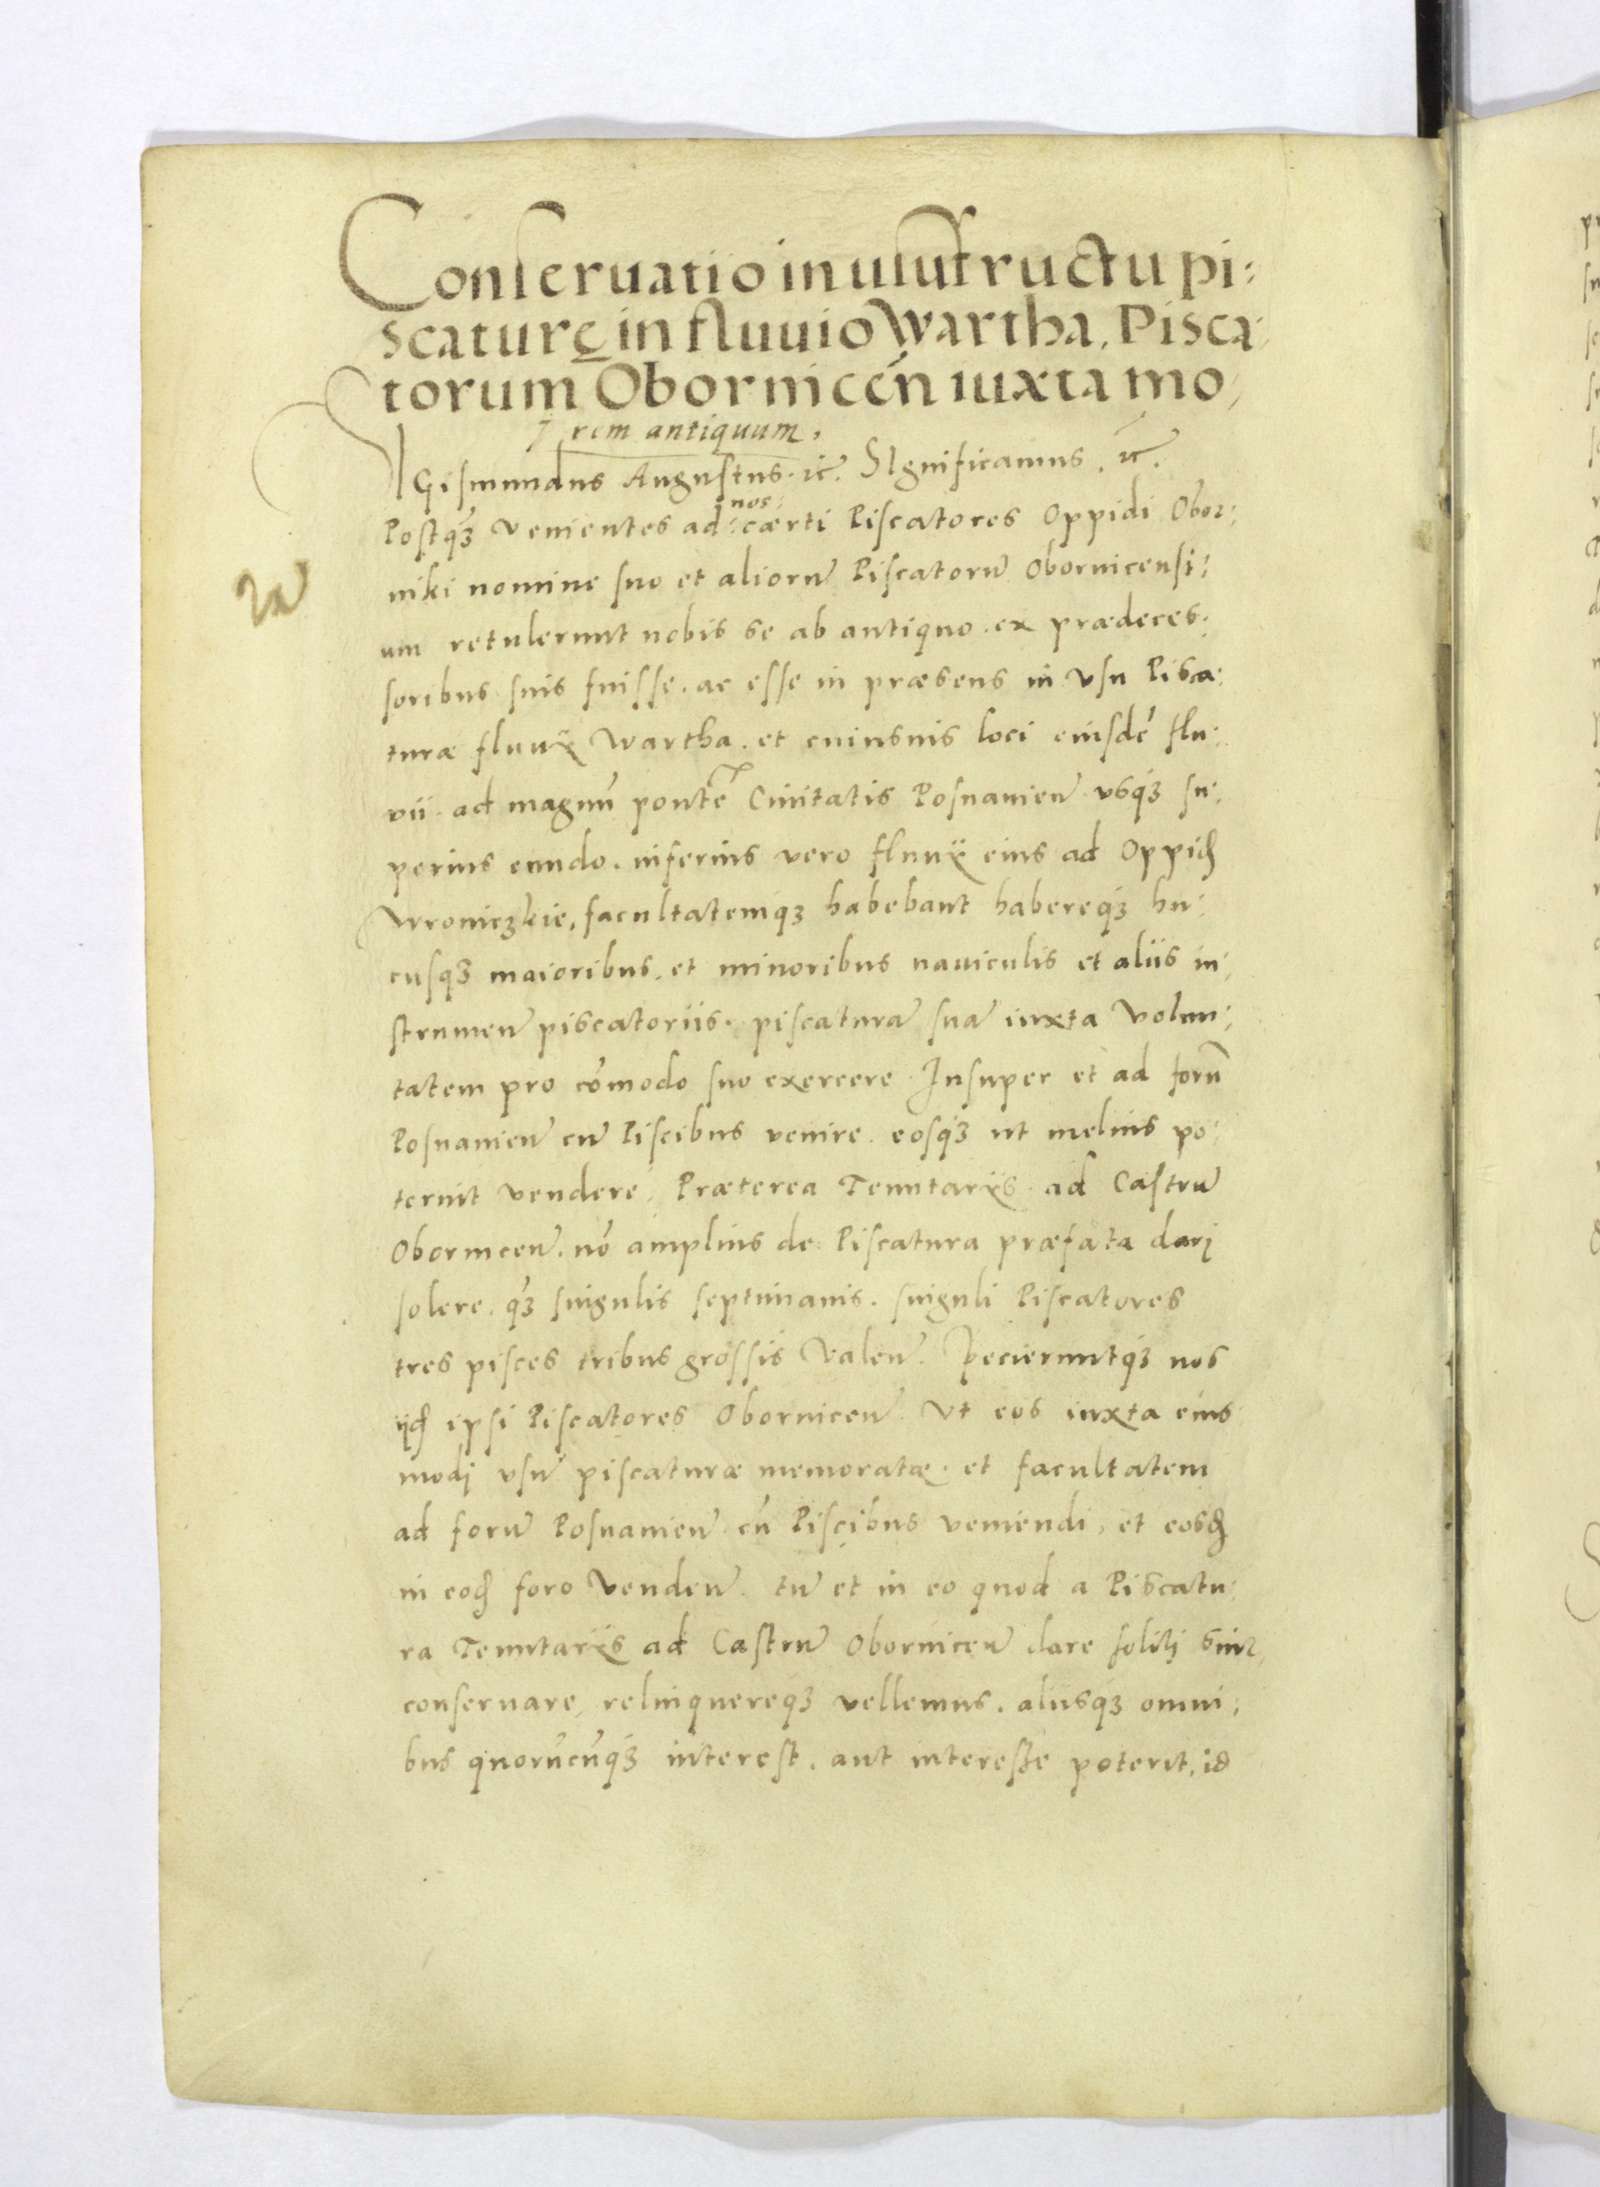 Conseruatio in usufructu pi:
scaturę in fluuio Wartha, Pisca:
torum Obornicen̄ iuxta mo,
rem antiquum,
SIGismundus Augustus. ꝛc̄. SIgnificamus, ꝛc̄.
Postq́ꝫ venientes ad nos: cærti Piscatores Oppidi Obor:
niki nomine suo et aliorū Piscatorū Obornicensi:
um retulerunt nobis se ab antiquo. ex prædeces:
soribus suis fuisse. ac esse in præsens in vsu Pisca:
turæ fluuÿ Wartha. et cuiusuis loci eiusdē flu:
vii. ad magnū pontē Ciuitatis Posnanien̄ vsq́ꝫ su:
perius eundo. inferius vero fluuÿ eius ad Oppid̄
Wroniczkie, facultatemqꝫ habebant habereq́ꝫ hu:
cusq́ꝫ maioribus, et minoribus nauiculis et aliis in:
strumen̄ piscatoriis. piscaturā suā iuxta volun:
tatem pro cōmodo suo exercere Insuper et ad forū
Posnanien̄ cū Piscibus venire. eosq́ꝫ ut melius po:
teruit vendere, Præterea Tenutarÿs. ad Castrū
Obornicen̄. nō amplius de Piscatura præfata darj
solere. q́ꝫ singulis septimanis. singuli Piscatores
tres pisces tribus grossis valen̄. Pecieruntq́ꝫ nos
ijd̄ ipsi Piscatores Obornicen̄ Vt eos iuxta eius
modj vsū piscaturæ memoratæ. et facultatem
ad forū Posnanien̄ cū Piscibus veniendi, et eosd̄
in eod̄ foro venden̄. tū et in eo quod a Piscatu:
ra Tenutarÿs ad Castrū Obornicen̄ dare solitj sint,
conseruare, relinquereqꝫ vellemus. aliisq́ꝫ omni:
bus quorūcūq́ꝫ interest. aut interesse poterit, id